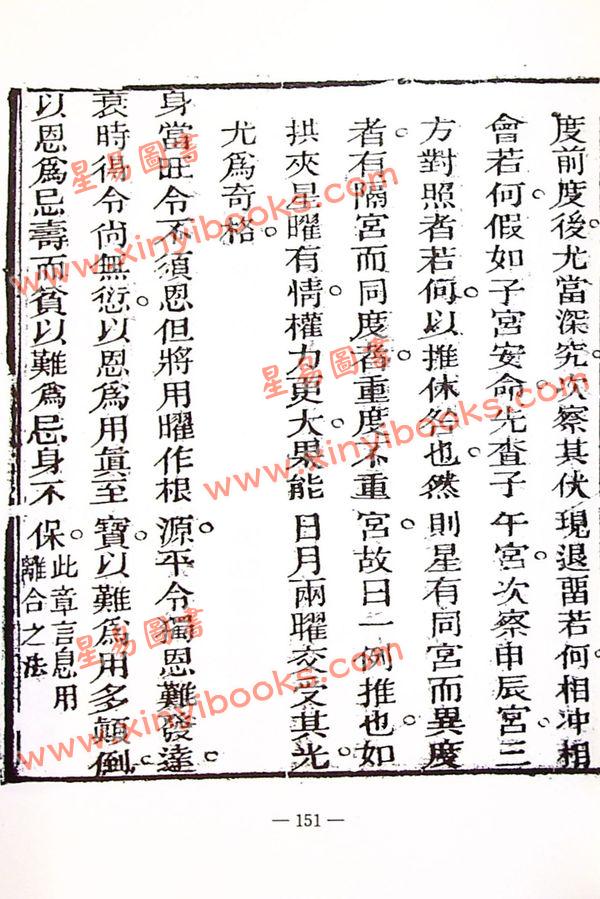 度前度後。尤當深究。次察其伏現退留若何。相冲相
會若何。假如子宮安命。先查子午宮。次察申辰宮。三
方對照者若何。以推休咎也。然則星有同宮而異度
者。有隔宮而同度者。重度不重宮。故曰一例推也。如
拱夾星曜有情。權力更大。果能日月兩曜交受其光。
尤爲奇格。
身當旺令不須恩但將用曜作根源。平令獨恩難發達。
衰時得令尚無愆。以恩爲用眞至寶。以難爲用多顛倒。
以恩爲忌壽而貧。以難爲忌身不保。此章言恩用
離合之法
星易圖書
www.xinyibooks.com
星易圖書
www.xinyibooks.com
星易圖書
www.xinyibooks.com
— 151 —